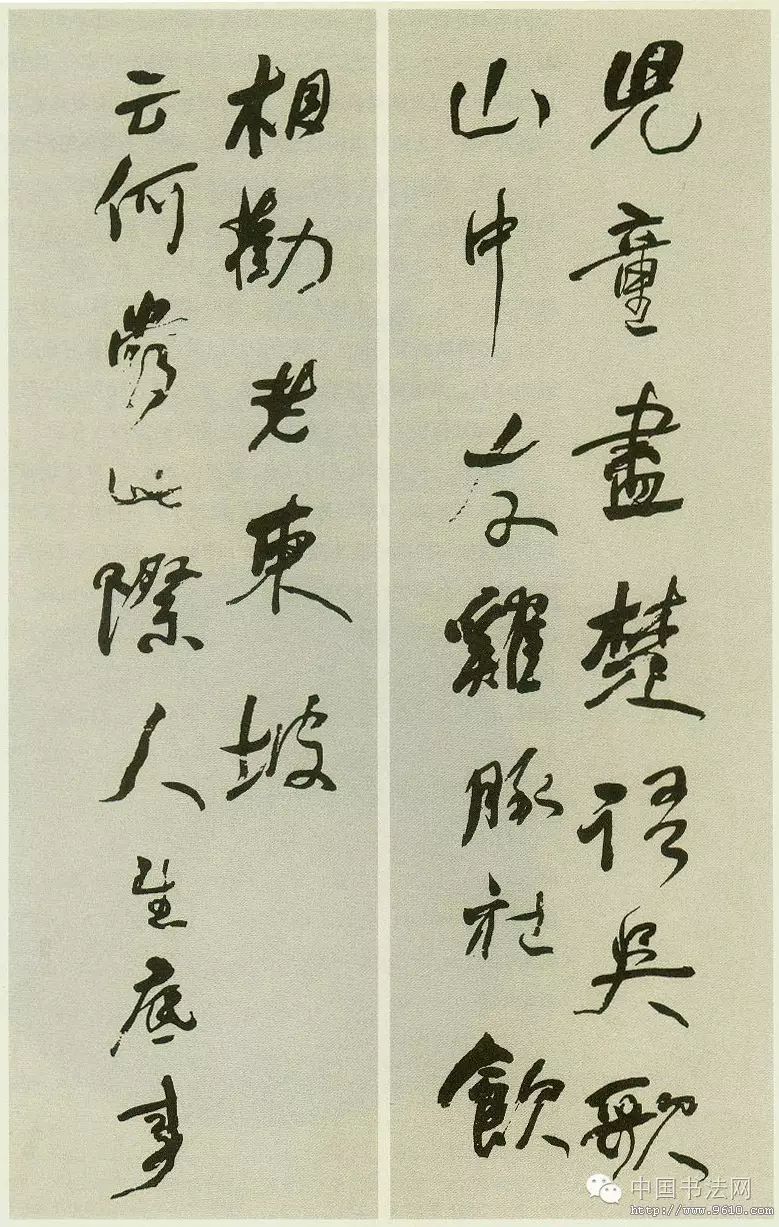 兒童盡楚語吳歌
山中友雞豚社飲
相勸老東坡
云何當此際人生底事
中国书法网
http://www.9610.com